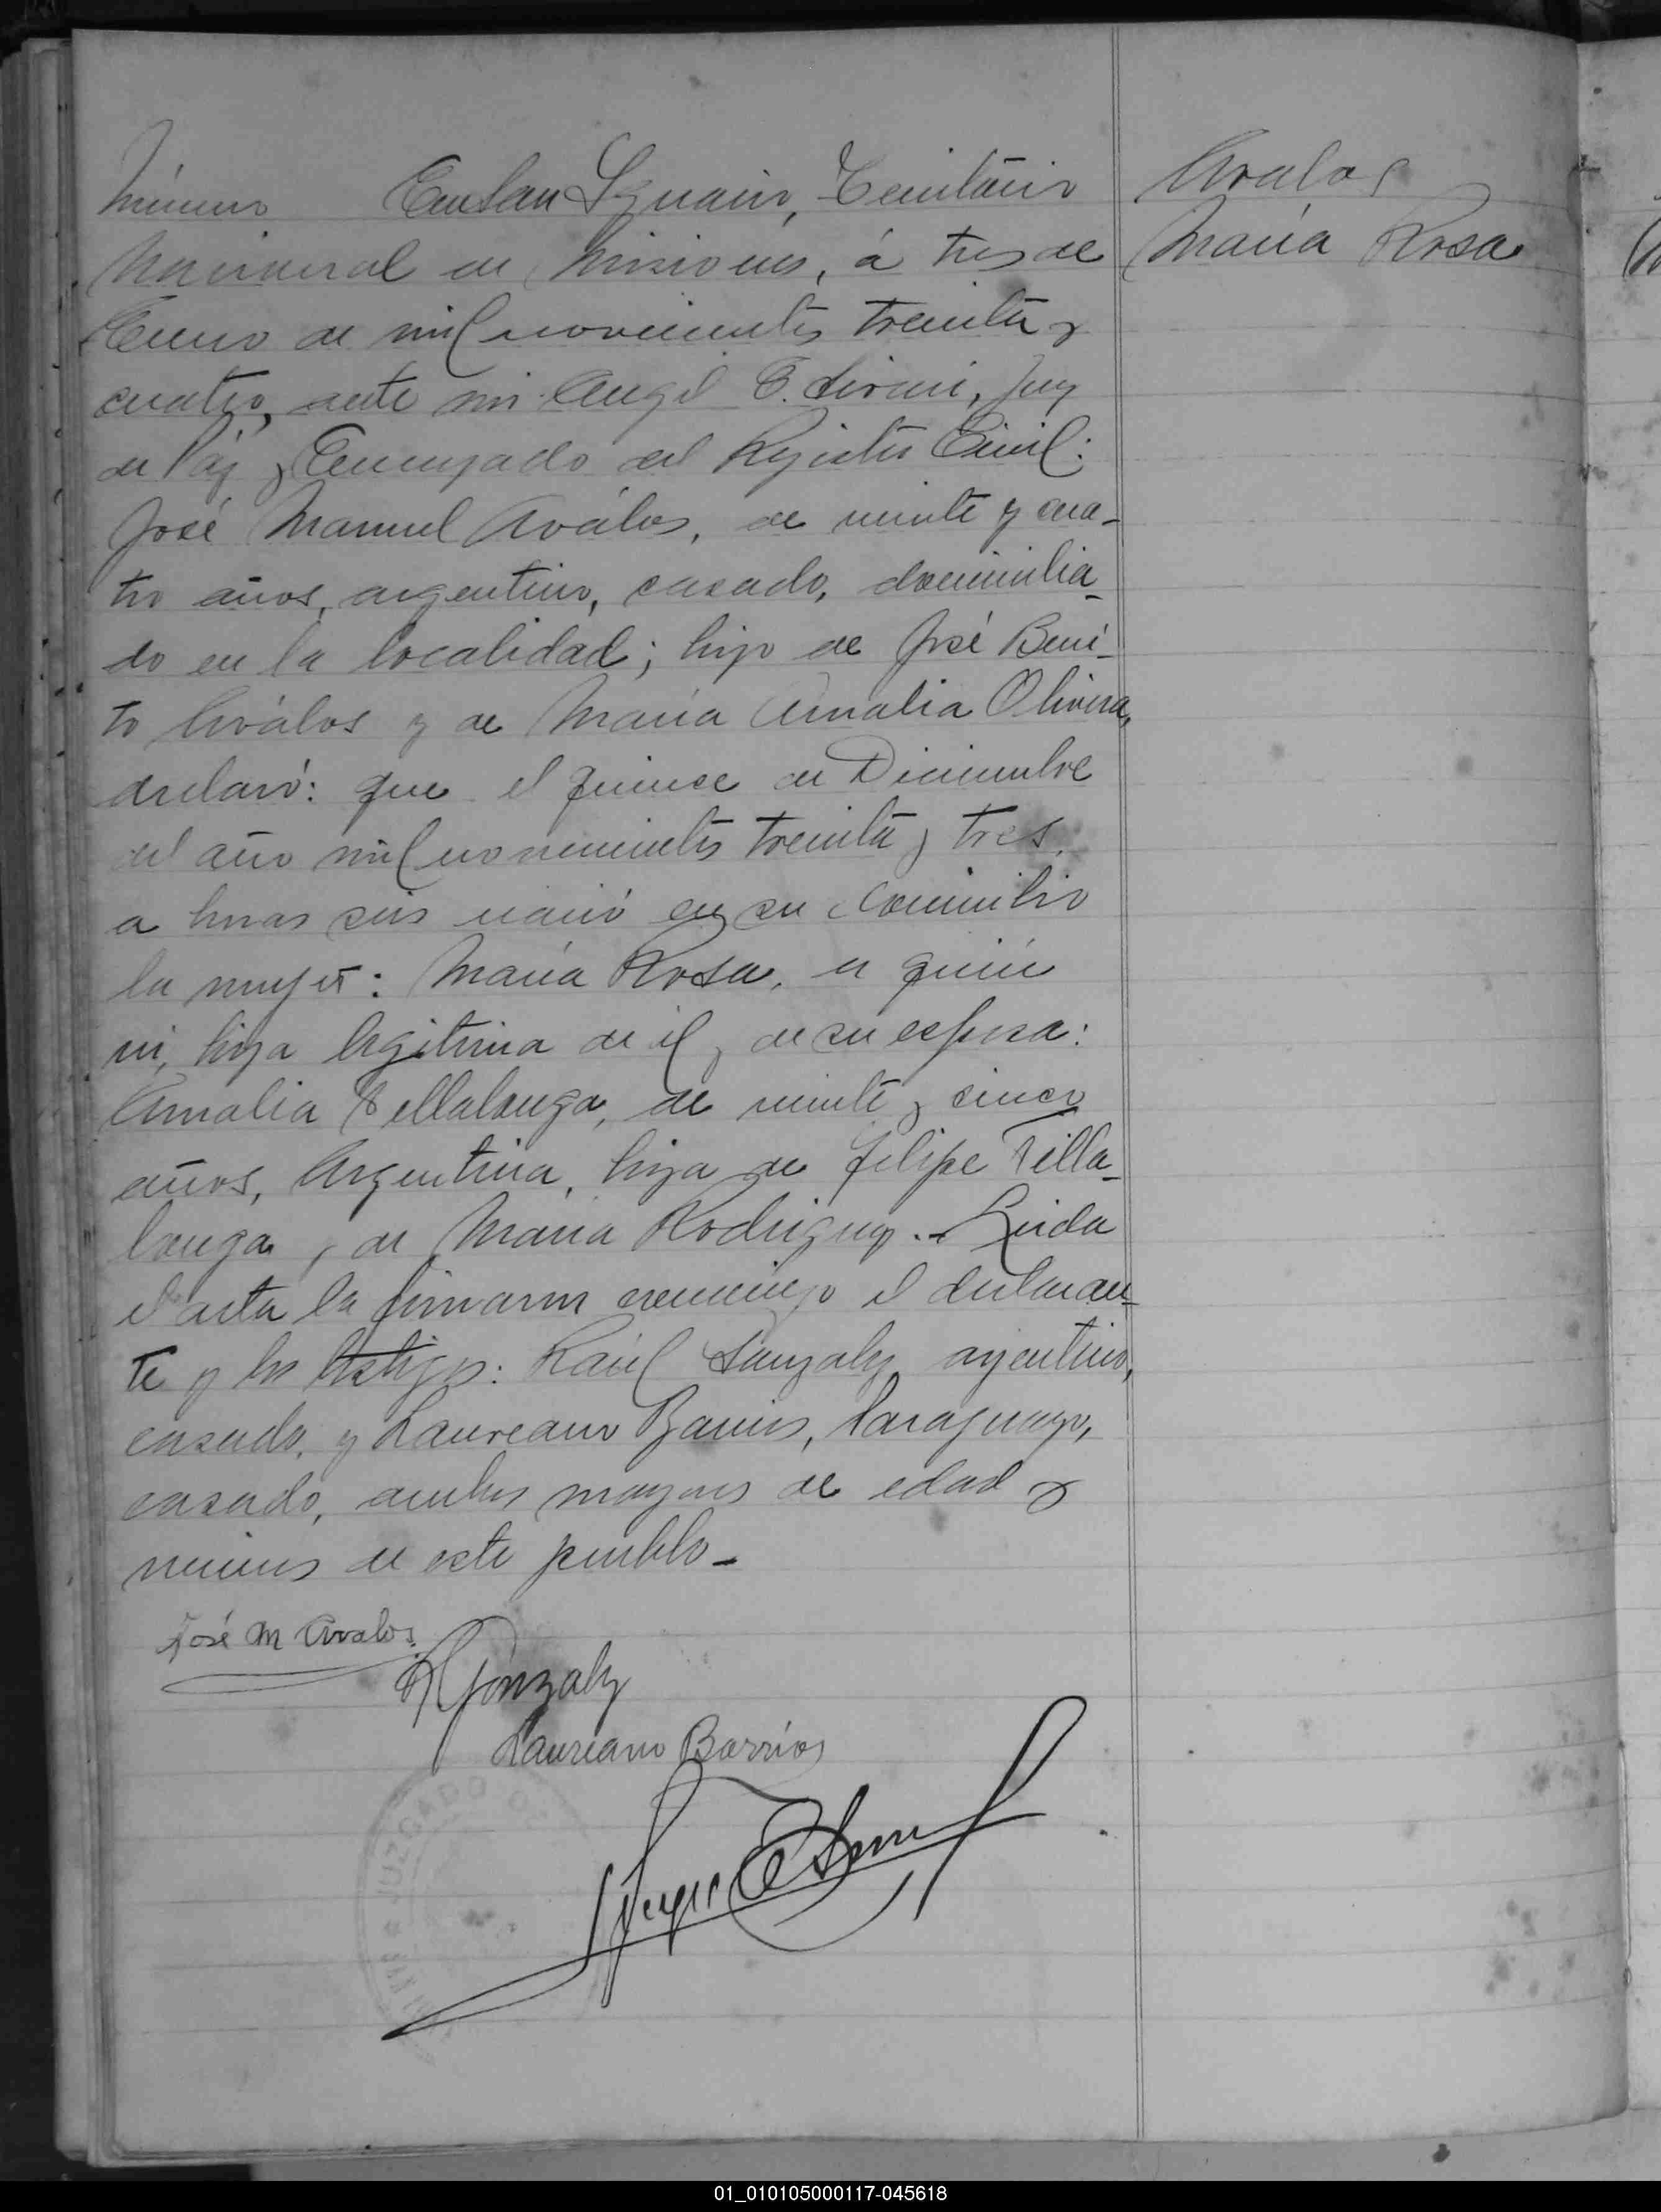 Número En San Ignacio, Territorio
Nacional de Misiones, á tres de
Enero de mil novecientos treinta y
cuatro, ante mi Angel E. Juez
de Páz y Encargado del Registro Civil:
José Manuel Aválos, de veinte y cua-
tro años, argentino, casado, domicilia-
do en la localidad; hijo de José Beni-
to Aválos y de María Amalia Olivera,
declaró: que el quince de Diciembre
del año mil novecientos treinta y tres,
a horas seis nació en su domicilio
la mujer: María Rosa, a quién
vi, hija legitima de él y de su esposa:
Amalia Villalonga, de veinte y cinco
años, Argentina, hija de Felipe Villa-
longa y de María Rodriguez.- Leida
el acta la firmaron conmigo el declaran-
te y los testigos: Raúl Gonzalez, argentino,
casado, y Laureano Barrios, Paraguayo,
casado, ambos mayores de edad y
vecinos de este pueblo-
José M Avalos
R Gonzalez
Laureano Barrios
JUZGADO DE
Avalos
María Rosa
01_010105000117-045618